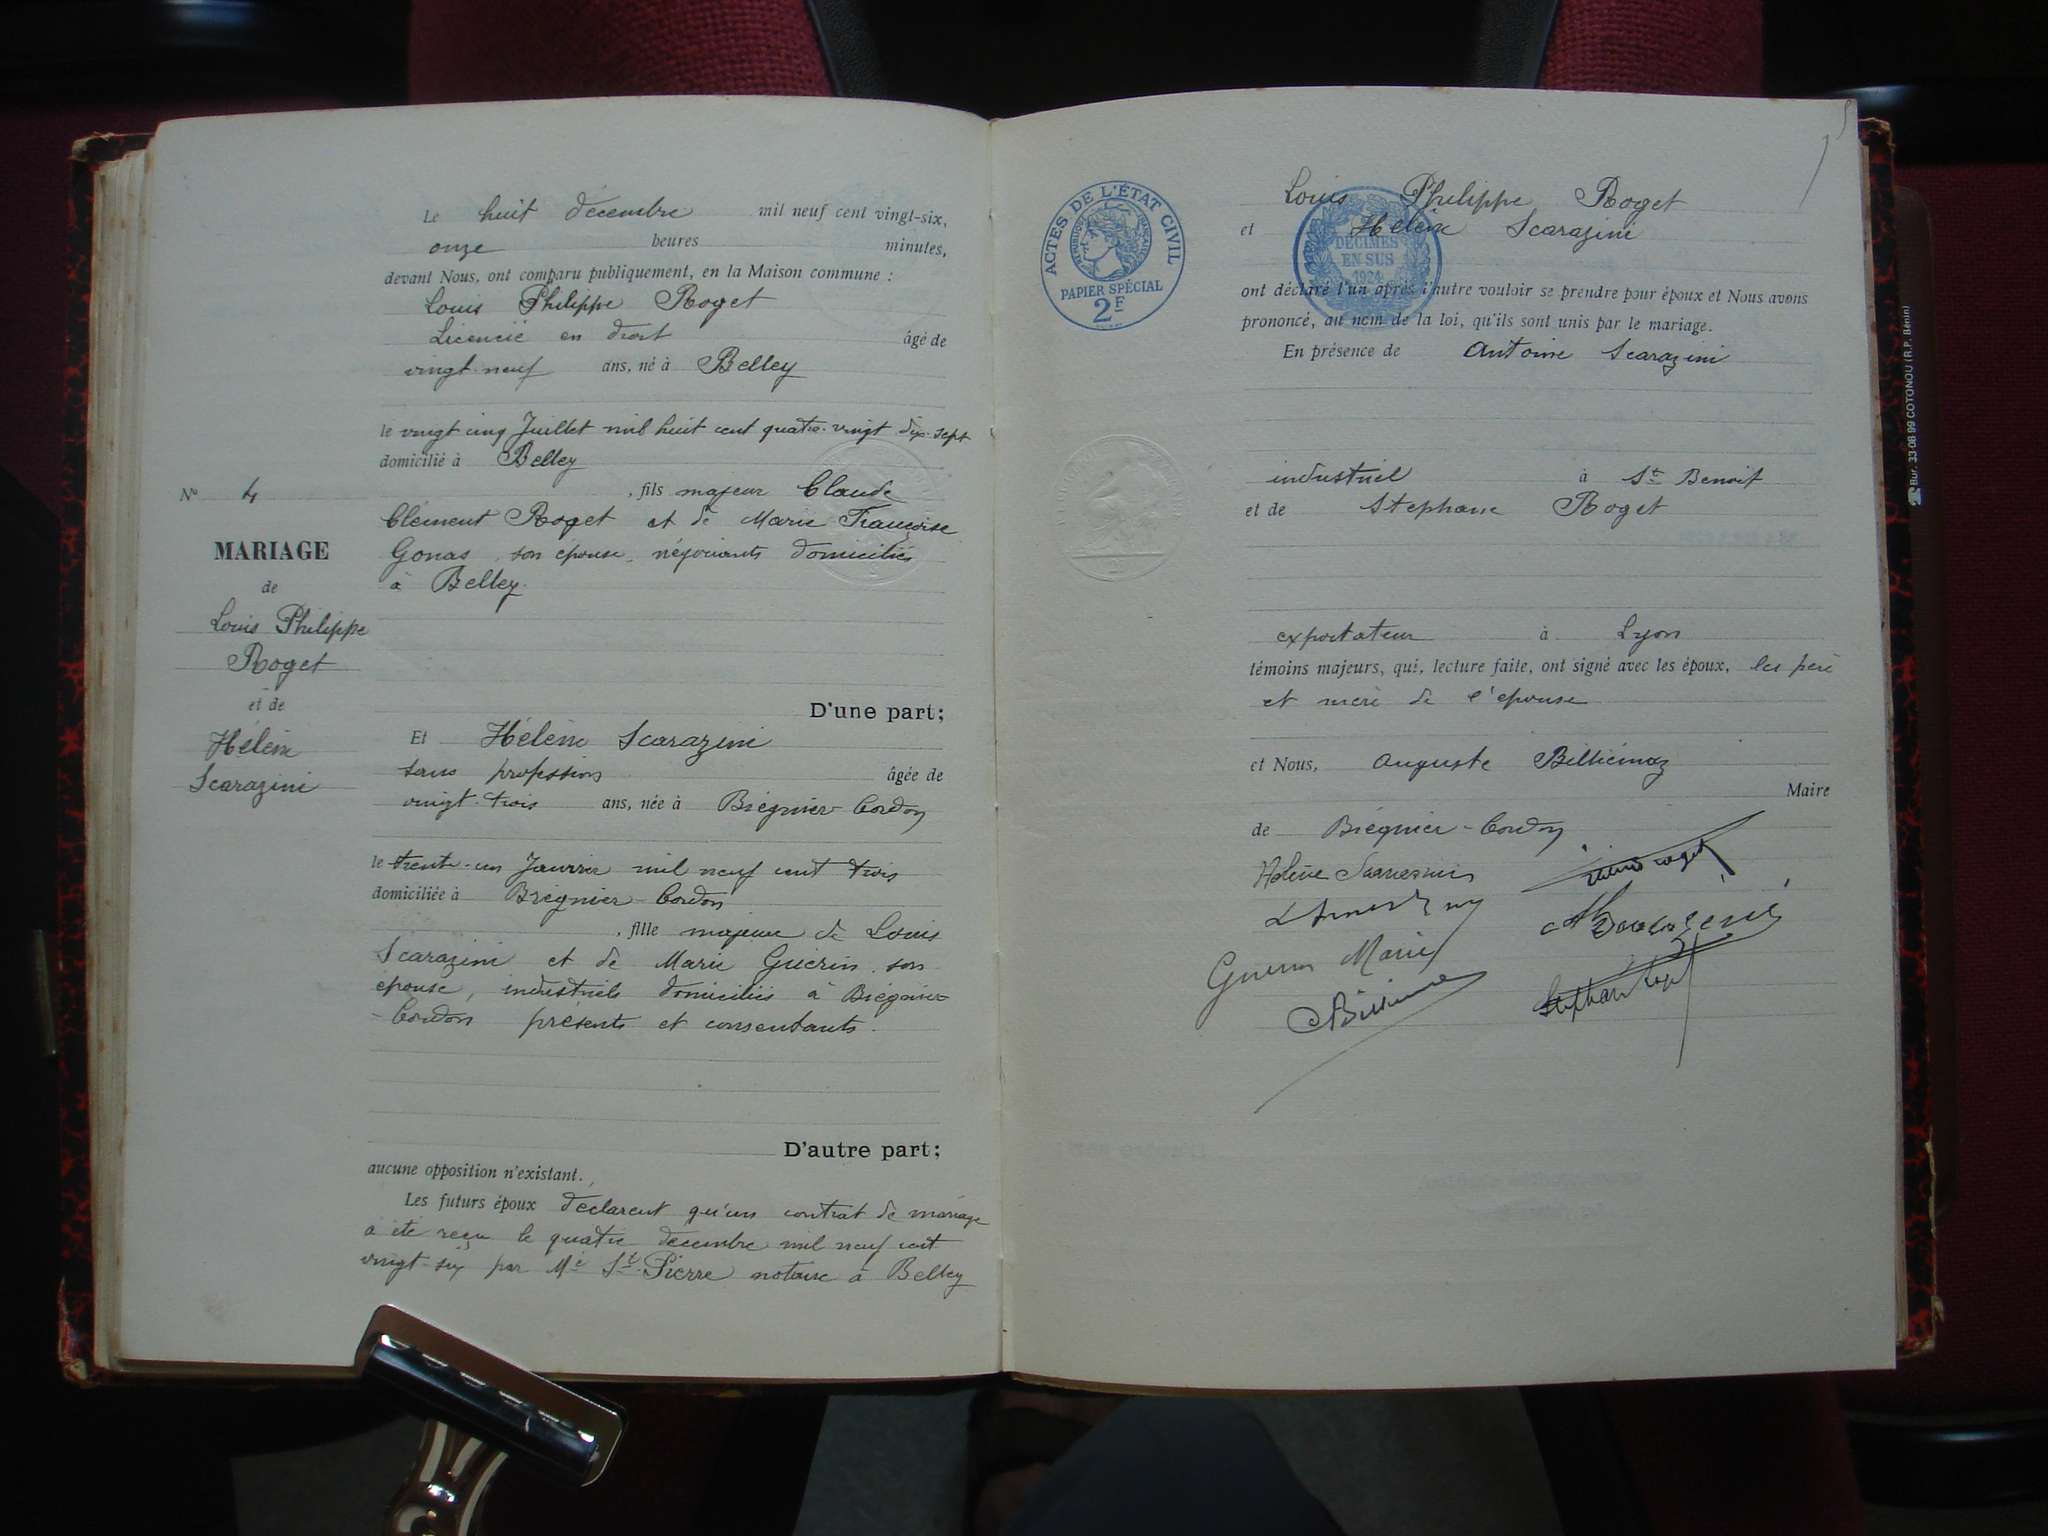 Le huit décembre mil neuf cent vingt-six,
onze heures minutes,
devant Nous, ont comparu publiquement, en la Maison commune :
Louis Philippe Roget
Licencié en droit âgé de
vingt-neuf ans, né à Belley
le vingt cinq Juillet mil huit cent quatre-vingt dix-sept
domicilié à Belley
, fils majeur Claude
Clément Roget et de Marie Françoise
Gonas son épouse, négociants domiciliés
à Belley.
N° 4
MARIAGE
de
Louis Philippe
Roget
et de
Hélène
Scarazini
D'une part;
Et Hélène Scarazini
sans profession âgée de
vingt-trois ans, née à Brégnier-Cordon
le trente-un Janvier mil neuf cent trois
domiciliée à Brégnier-Cordon
, fille majeure de Louis
Scarazini et de Marie Guerin son
épouse, industriels domiciliés à Brégnier-
-Cordon présents et consentants.
D'autre part;
aucune opposition n'existant.
Les futurs époux déclarent qu'un contrat de mariage
a été reçu le quatre décembre mil neuf cent
vingt-six par Me St-Pierre notaire à Belley
ACTES DE L'ÉTAT CIVIL
PAPIER SPÉCIAL
2F
DÉCIMES
EN SUS
1924
Louis Philippe Roget
et Hélène Scarazini
ont déclaré l'un après l'autre vouloir se prendre pour époux et Nous avons
prononcé, au nom de la loi, qu'ils sont unis par le mariage.
En présence de Antoine Scarazini
industriel à St Benoit
et de Stephane Roget
exportateur à Lyon
témoins majeurs, qui, lecture faite, ont signé avec les époux, les père
et mère de l'épouse
et Nous, Auguste Billiémaz
Maire
de Brégnier-Cordon
Hélène
Guerin Marie
Stephane Roget
Bur. 33-08 99 COTONOU (R.P. Bénin)